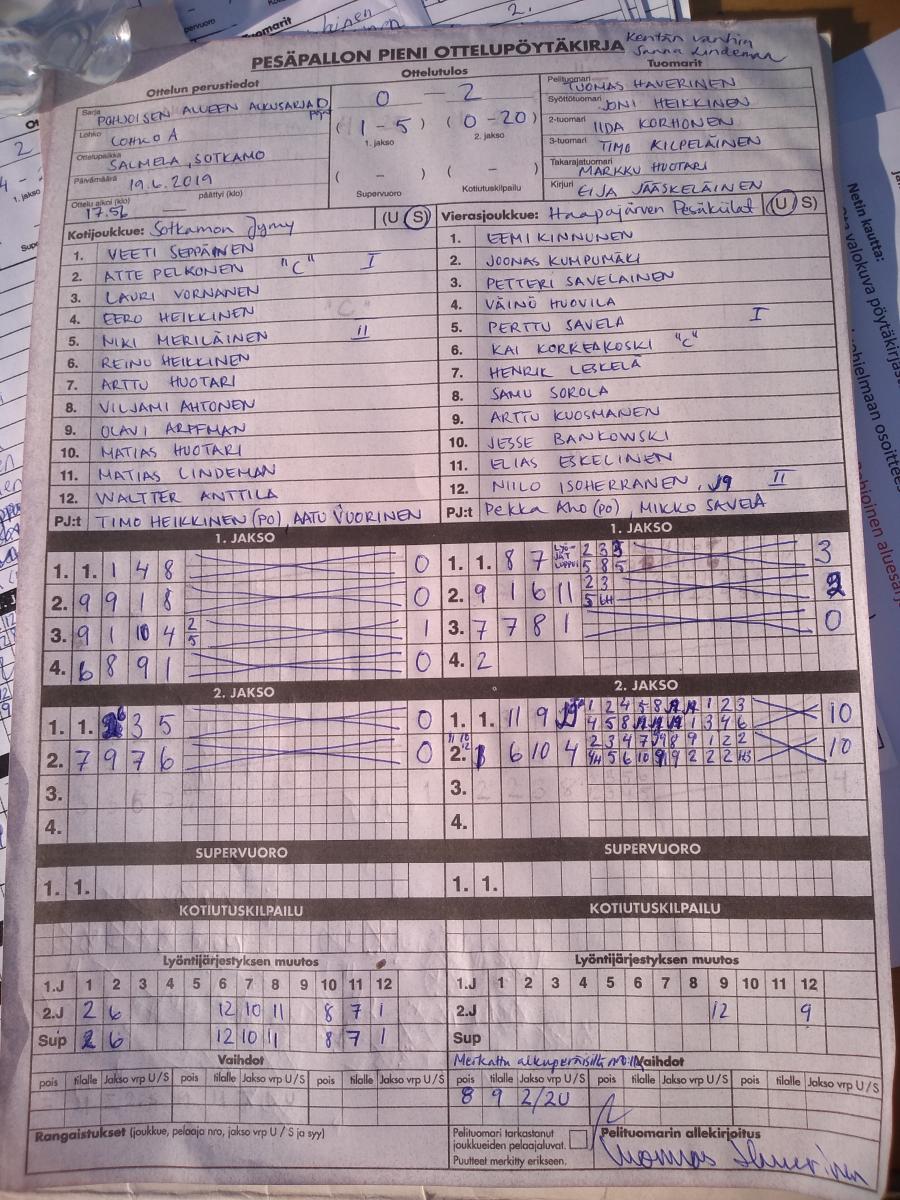 PESÄPALLON PIENI OTTELUPÖYTÄKIRJA
Kentän vanhin
Sanna Lindeman
Ottelun perustiedot
Sarja POHJOISEN ALUEEN ALKUSARJA D pojat
Lohko LOHKO A
Ottelupaikka SALMELA, SOTKAMO
Päivämäärä 19.6.2019
Ottelu alkoi (klo) 17.52 päättyi (klo) —
Ottelutulos
0 – 2
(1 – 5) (0 – 20)
1. jakso 2. jakso
( – ) ( – )
Supervuoro Kotiutuskilpailu
Tuomarit
Pelituomari TUOMAS HAVERINEN
Syöttötuomari JONI HEIKKINEN
2-tuomari IIDA KORHONEN
3-tuomari TIMO KILPELÄINEN
Takarajatuomari MARKKU HUOTARI
Kirjuri EIJA JÄÄSKELÄINEN
Kotijoukkue: Sotkamon Jymy (U S)
1. VEETI SEPPÄINEN
2. ATTE PELKONEN "C" I
3. LAURI VORNANEN
4. EERO HEIKKINEN
5. NIKI MERILÄINEN II
6. REINO HEIKKINEN
7. ARTTU HUOTARI
8. VILJAMI AHTONEN
9. OLAVI ARFFMAN
10. MATIAS HUOTARI
11. MATIAS LINDEMAN
12. WALTTER ANTTILA
PJ:t TIMO HEIKKINEN (PO), AATU VUORINEN
Vierasjoukkue: Haapajärven Pesäkiilat (U S)
1. EEMI KINNUNEN
2. JOONAS KUMPUMÄKI
3. PETTERI SAVELAINEN
4. VÄINÖ HUOVILA
5. PERTTU SAVELA I
6. KAI KORKEAKOSKI "C"
7. HENRIK LESKELÄ
8. SAMU SOROLA
9. ARTTU KUOSMANEN
10. JESSE BANKOWSKI
11. ELIAS ESKELINEN
12. NIILO ISOHERRANEN, 19 II
PJ:t Pekka Aho (po), MIKKO SAVELA
1. JAKSO
1. 1. 1 4 8 0
2. 9 9 1 8 0
3. 9 1 10 4 2 5 1
4. 6 8 9 1 0
2. JAKSO
1. 1. 6 3 5 0
2. 7 9 7 6 0
3.
4.
SUPERVUORO
1. 1.
KOTIUTUSKILPAILU
1. JAKSO
1. 1. 8 7 LYÖ-JÄT LOPPUI 2 3 3 3
5 8 5
2. 9 1 6 11 2 3 2
5 6H
3. 7 7 8 1 0
4. 2
2. JAKSO
1. 1. 11 9 1 2 4 5 8 1 2 3 10
4 5 8 1 3 4 6
2. 6 10 4 2 3 4 7 8 9 1 2 2 10
4H 5 6 10 9 9 2 2 2 H3
3.
4.
SUPERVUORO
1. 1.
KOTIUTUSKILPAILU
Lyöntijärjestyksen muutos
1.J 1 2 3 4 5 6 7 8 9 10 11 12
2.J 2 6 12 10 11 8 7 1
Sup 2 6 12 10 11 8 7 1
Lyöntijärjestyksen muutos
1.J 1 2 3 4 5 6 7 8 9 10 11 12
2.J 12 9
Sup
Vaihdot
pois tilalle Jakso vrp U/S pois tilalle Jakso vrp U/S pois tilalle Jakso vrp U/S
Merkattu alkuperäisillä nro:illa Vaihdot
pois tilalle Jakso vrp U/S pois tilalle Jakso vrp U/S pois tilalle Jakso vrp U/S
8 9 2/2U
Rangaistukset (joukkue, pelaaja nro, jakso vrp U / S ja syy)
Pelituomari tarkastanut
joukkueiden pelaajaluvat.
Puutteet merkitty erikseen.
Pelituomarin allekirjoitus
Tuomas Haverinen
Netin kautta: